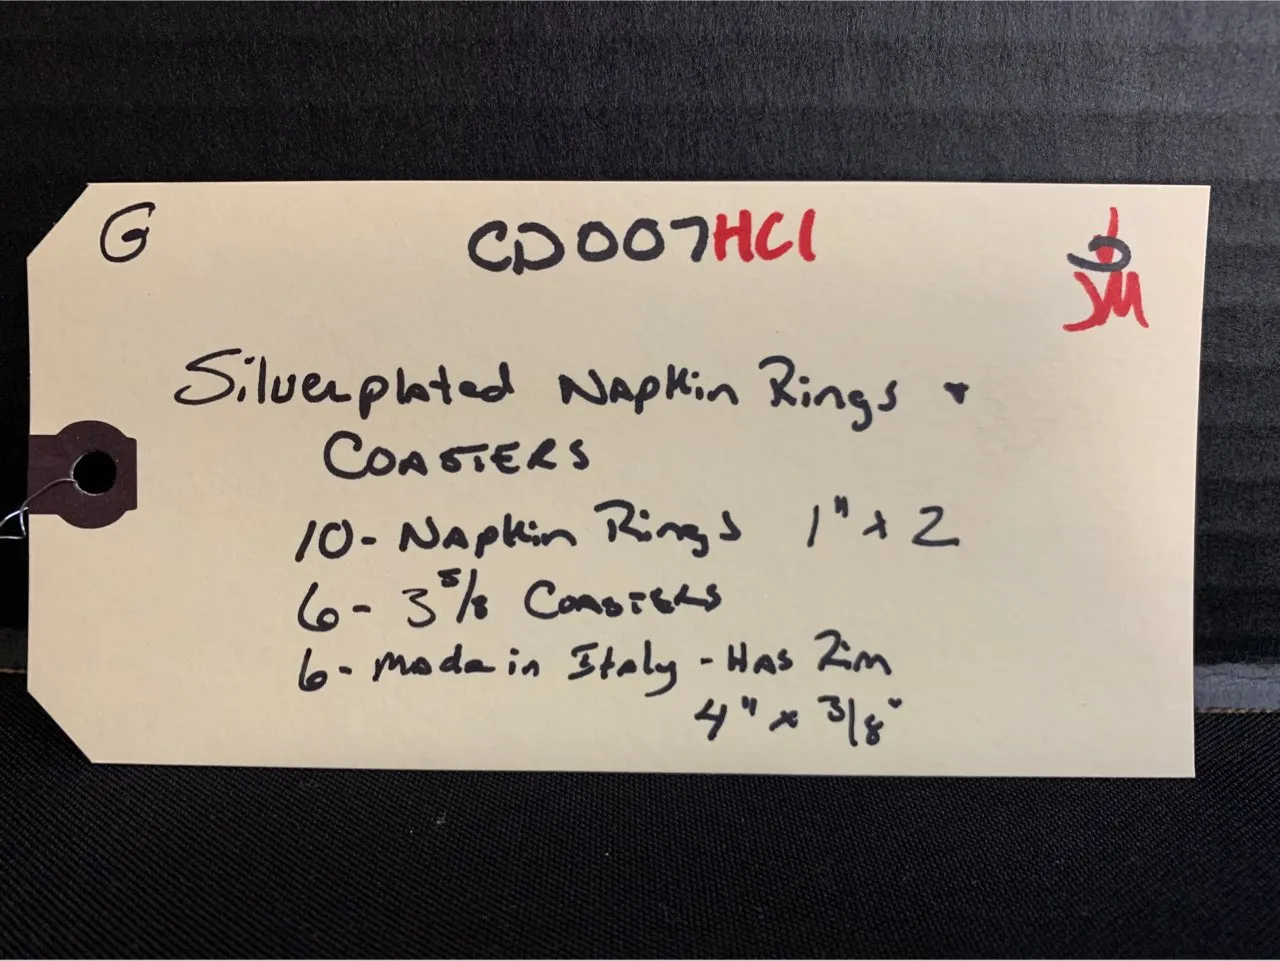 G CD007HC1 J
JM
Silverplated Napkin Rings +
COASTERS
10- Napkin Rings 1" x 2
6- 3 5/8 Coasters
6- Made in Italy - Has Rim
4" x 3/8"